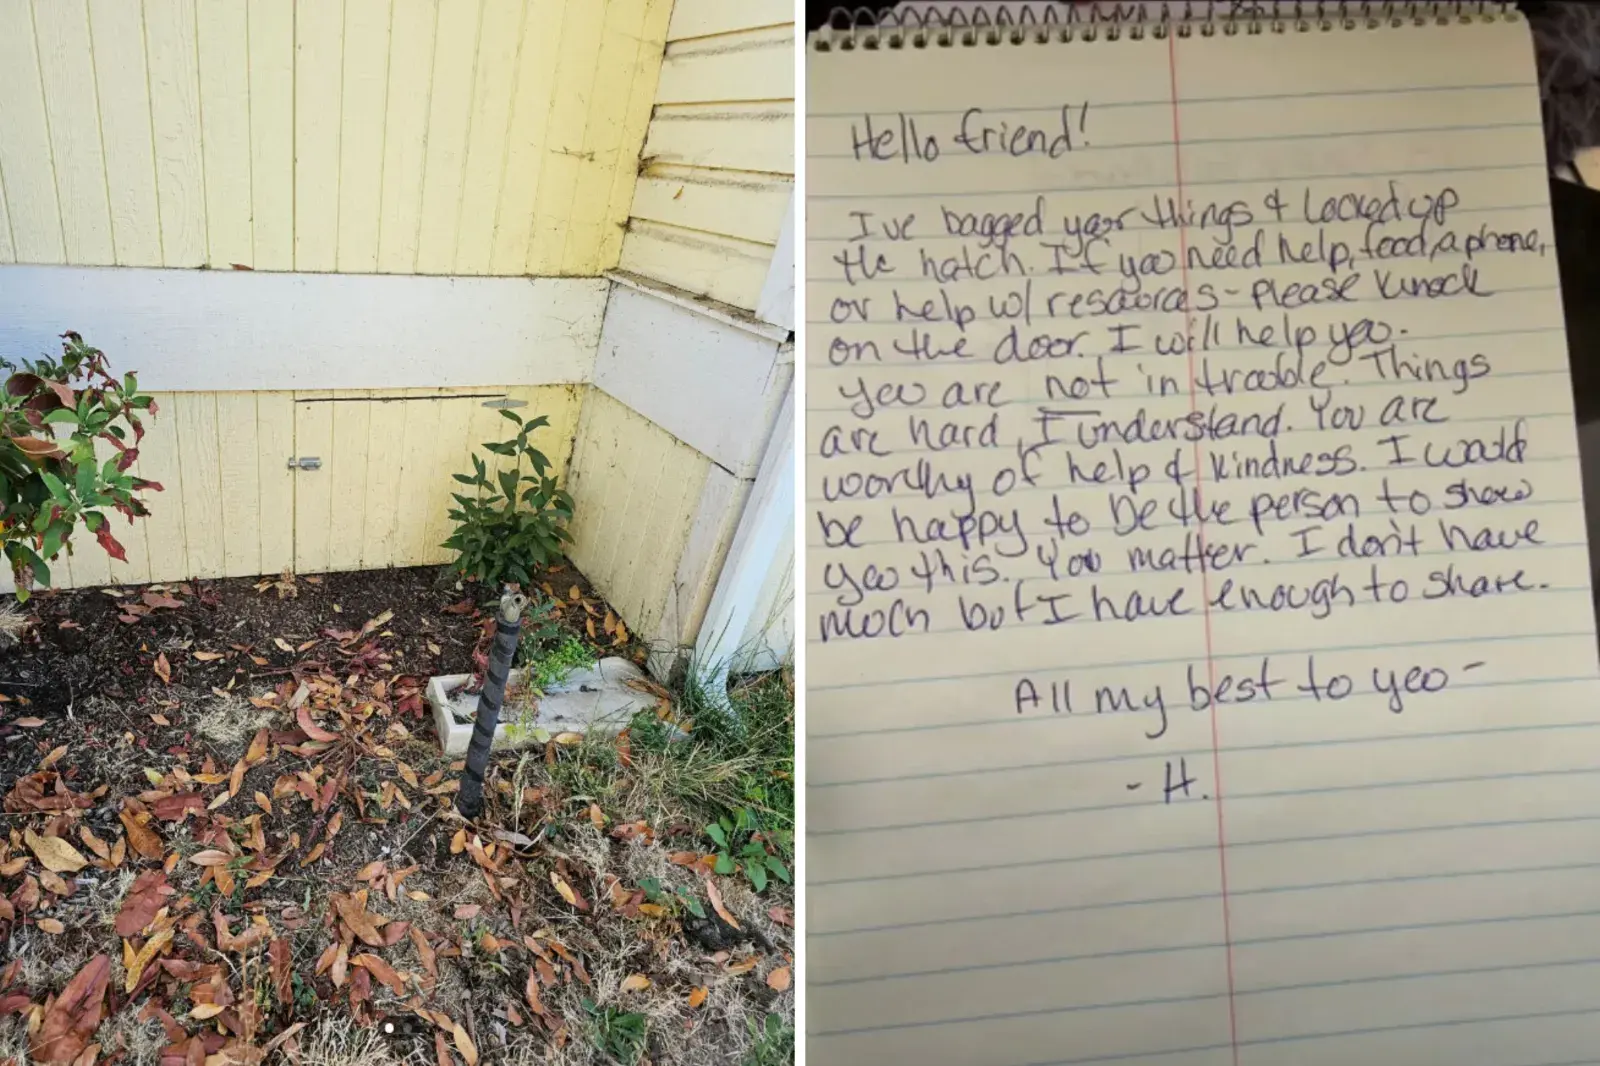 Hello friend!
I've bagged your things & locked up
the hatch. If you need help, food, a phone,
or help w/ resources - please knock
on the door. I will help you.
You are not in trouble. Things
are hard, I understand. You are
worthy of help & kindness. I would
be happy to be the person to show
you this. You matter. I don't have
much but I have enough to share.
All my best to you -
- H.